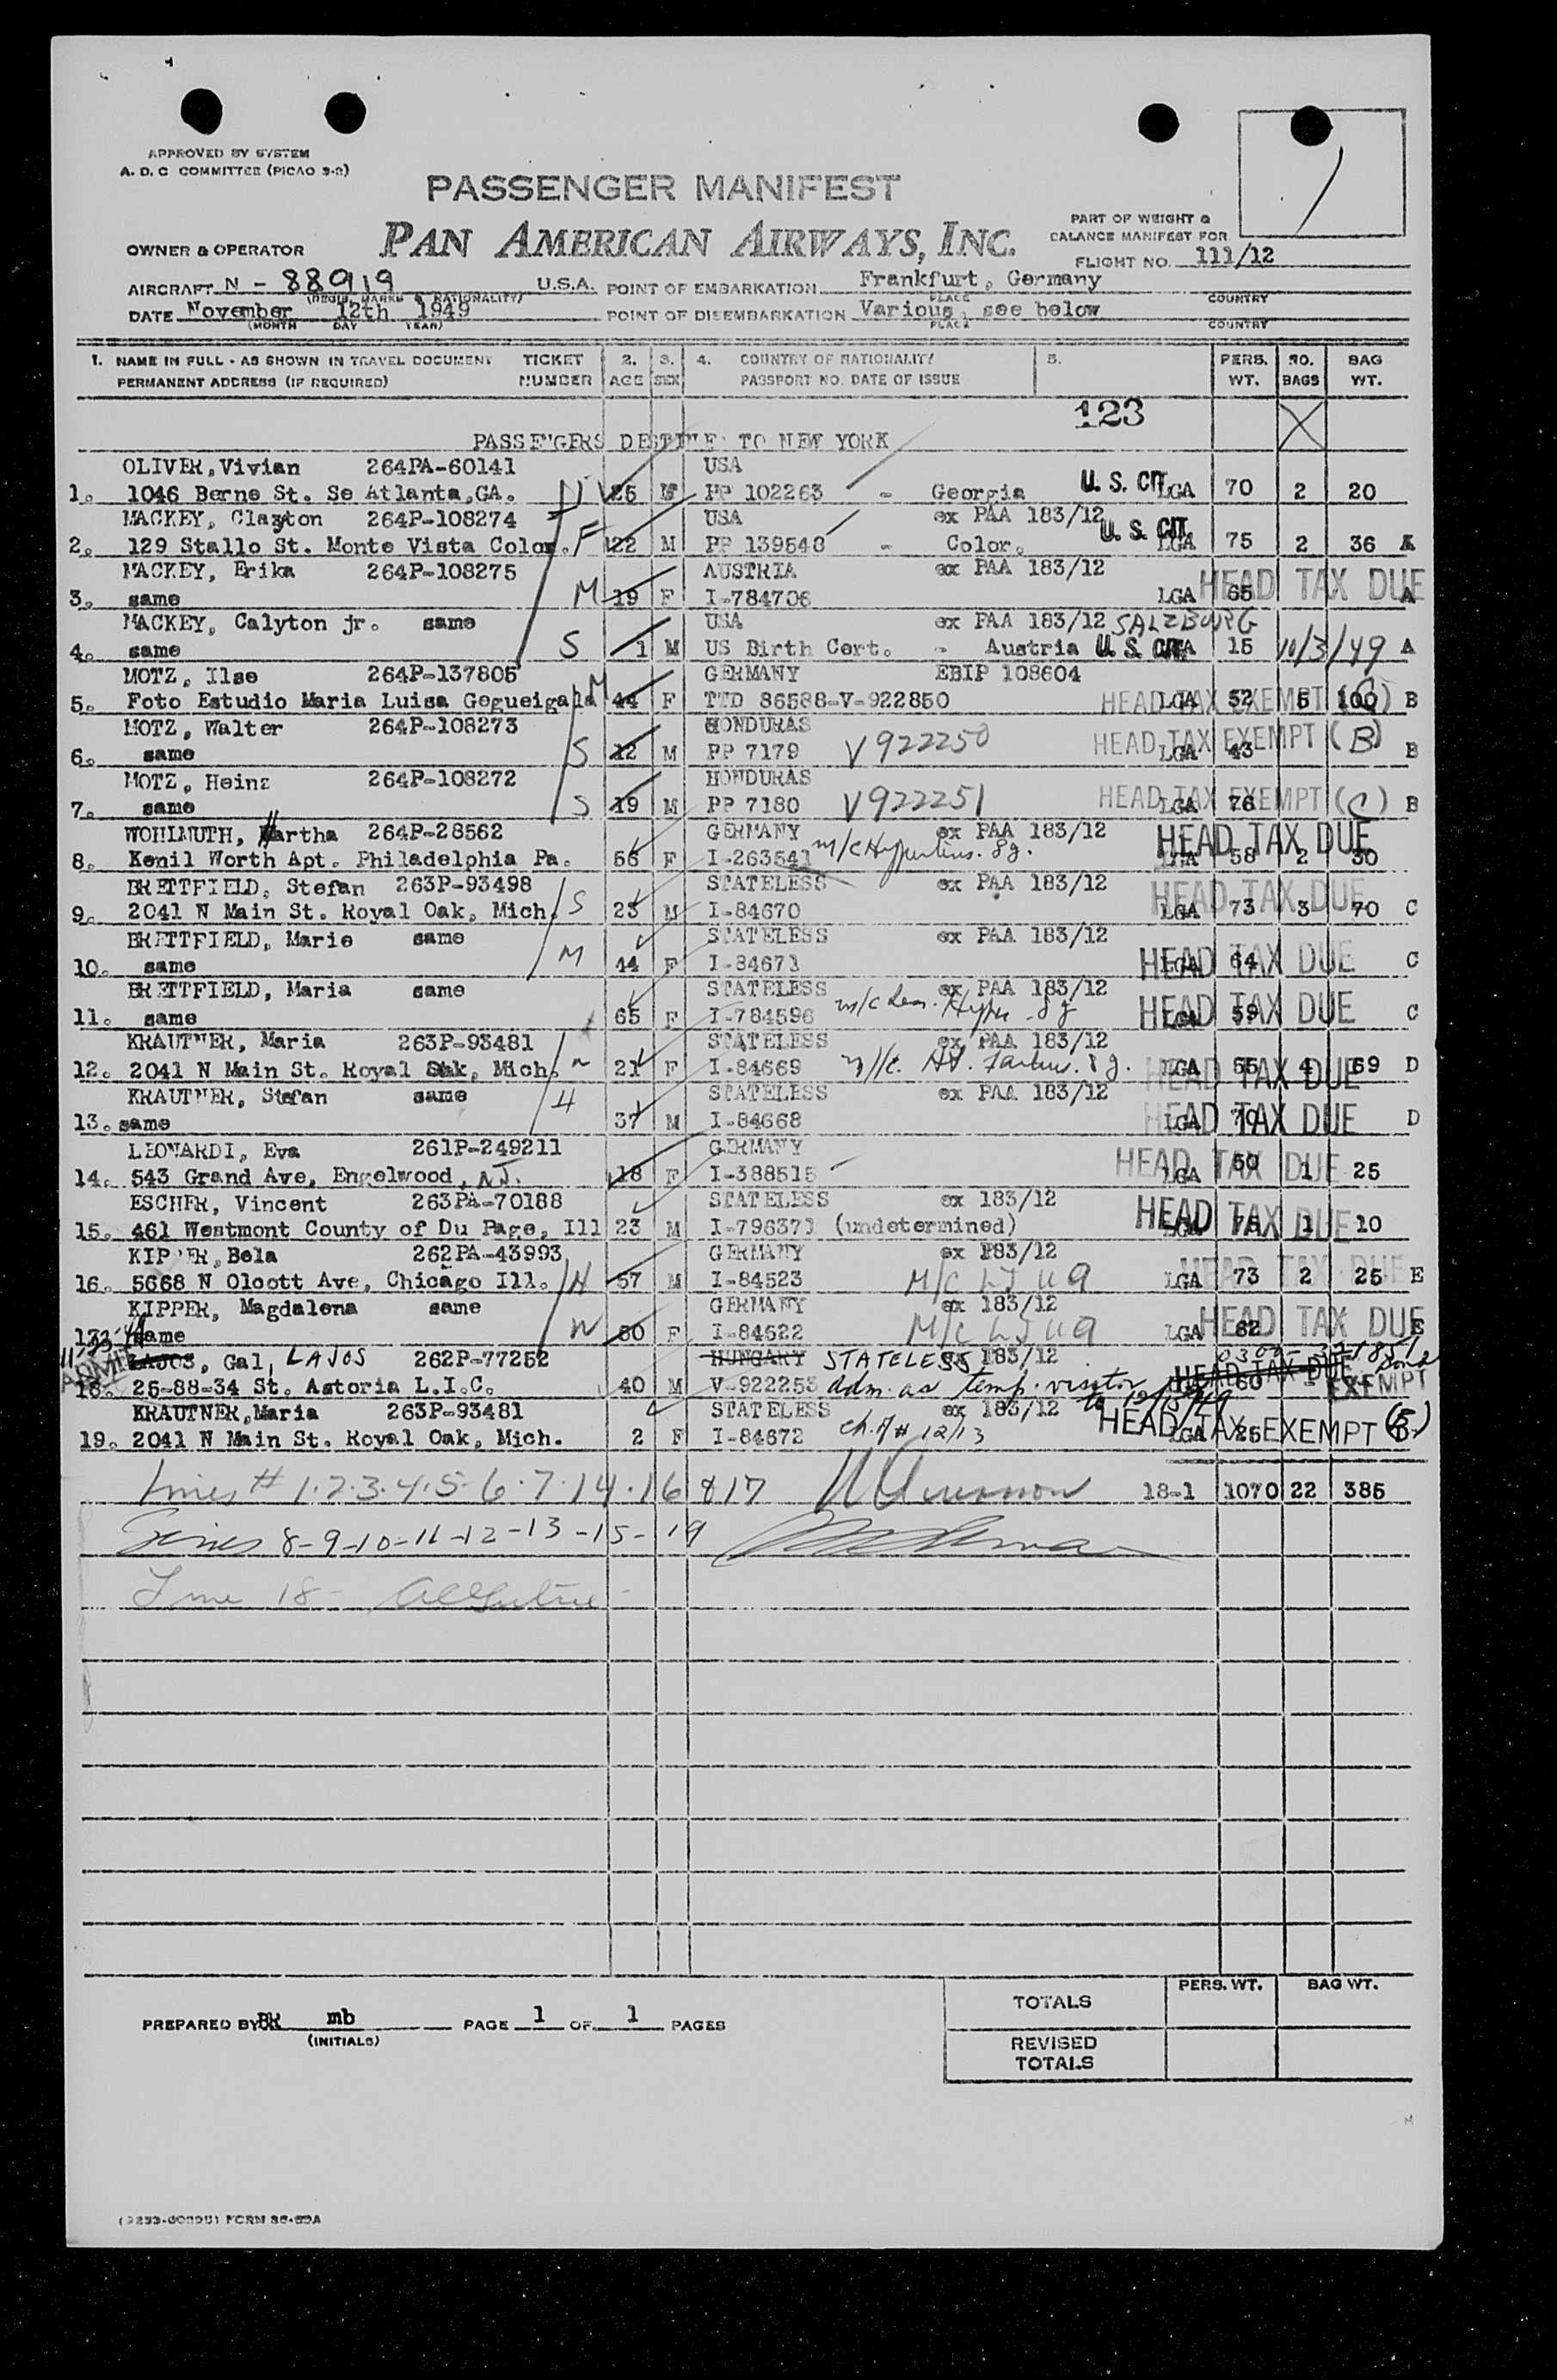 APPROVED BY SYSTEM
A. D. C COMMITTEE (PICAO 9-2)
PASSENGER MANIFEST
PAN AMERICAN AIRWAYS, INC.
PART OF WEIGHT &
BALANCE MANIFEST FOR
OWNER & OPERATOR
FLIGHT NO. 111/12
AIRCRAFT N - 88919 U.S.A. POINT OF EMBARKATION Frankfurt, Germany
(REGIS. MARKS & NATIONALITY) PLACE COUNTRY
DATE November 12th 1949 POINT OF DISEMBARKATION Various, see below
(MONTH DAY YEAR) PLACE COUNTRY
1. NAME IN FULL - AS SHOWN IN TRAVEL DOCUMENT TICKET 2. 3. 4. COUNTRY OF NATIONALITY 5. PERS. NO. BAG
PERMANENT ADDRESS (IF REQUIRED) NUMBER AGE SEX PASSPORT NO. DATE OF ISSUE WT. BAGS WT.
123
PASSENGERS DESTINED TO NEW YORK
OLIVER, Vivian 264PA-60141 USA
1. 1046 Berne St. Se Atlanta,GA. 25 PP 102263 - Georgia U. S. CIT. LGA 70 2 20
MACKEY, Clayton 264P-108274 USA ex PAA 183/12
2. 129 Stallo St. Monte Vista Color. F 22 M PP 139548 - Color. U. S. CIT. LGA 75 2 36 A
MACKEY, Erika 264P-108275 AUSTRIA ex PAA 183/12
3. same M 19 F I-784706 LGA HEAD TAX DUE 65 A
MACKEY, Calyton jr. same USA ex PAA 183/12 SALZBURG
4. same S 1 M US Birth Cert. - Austria U. S. CIT. LGA 15 10/3/49 A
MOTZ, Ilse 264P-137805 GERMANY EBIP 108604
5. Foto Estudio Maria Luisa Gegueigala M 44 F TTD 86588-V-922850 HEAD TAX EXEMPT LGA 52 5 100 B
MOTZ, Walter 264P-108273 HONDURAS
6. same S 12 M PP 7179 V922250 HEAD TAX EXEMPT (B) LGA 43 B
MOTZ, Heinz 264P-108272 HONDURAS
7. same S 19 M PP 7180 V922251 HEAD TAX EXEMPT (C) LGA 76 B
WOHLMUTH, Martha 264P-28562 GERMANY ex PAA 183/12
8. Kenil Worth Apt. Philadelphia Pa. 56 F I-263541 HEAD TAX DUE LGA 58 2 30
BRETTFIELD, Stefan 263P-93498 STATELESS ex PAA 183/12
9. 2041 N Main St. Royal Oak, Mich. S 23 M I-84670 HEAD TAX DUE LGA 73 3 70 C
BRETTFIELD, Marie same STATELESS ex PAA 183/12
10. same M 44 F I-84671 HEAD TAX DUE LGA 64 C
BRETTFIELD, Maria same STATELESS ex PAA 183/12
11. same 65 F I-784596 HEAD TAX DUE LGA 59 C
KRAUTNER, Maria 263P-93481 STATELESS ex PAA 183/12
12. 2041 N Main St. Royal Oak, Mich. 21 F I-84669 HEAD TAX DUE LGA 55 4 69 D
KRAUTNER, Stefan same STATELESS ex PAA 183/12
13. same H 37 M I-84668 HEAD TAX DUE LGA 70 D
LEONARDI, Eva 261P-249211 GERMANY
14. 543 Grand Ave, Engelwood, N.J. 18 F I-388515 HEAD TAX DUE LGA 50 1 25
ESCHER, Vincent 263PA-70188 STATELESS ex 183/12
15. 461 Westmont County of Du Page, Ill 23 M I-796371 (undetermined) HEAD TAX DUE LGA 75 1 10
KIPPER, Bela 262PA-43993 GERMANY ex 183/12
16. 5668 N Olcott Ave, Chicago Ill. H 57 M I-84523 HEAD TAX DUE LGA 73 2 25 E
KIPPER, Magdalena same GERMANY ex 183/12
17. same W 50 F I-84622 HEAD TAX DUE LGA 62 E
LAJOS, Gal, LAJOS 262P-77252 HUNGARY STATELESS ex 183/12
18. 25-88-34 St. Astoria L.I.C. 40 M V-922253 adm. as temp. visitor to 12/13/49 HEAD TAX DUE LGA 60 - EXEMPT
KRAUTNER,Maria 263P-93481 STATELESS ex 183/12
19. 2041 N Main St. Royal Oak, Mich. 2 F I-84672 HEAD TAX EXEMPT LGA 25
Lines # 1-2-3-4-5-6-7-14-16 & 17 18-1 1070 22 385
Lines 8-9-10-11-12-13-15-19
Line 18-
PERS. WT. BAG WT.
TOTALS
PREPARED BY mb PAGE 1 OF 1 PAGES
(INITIALS)
REVISED
TOTALS